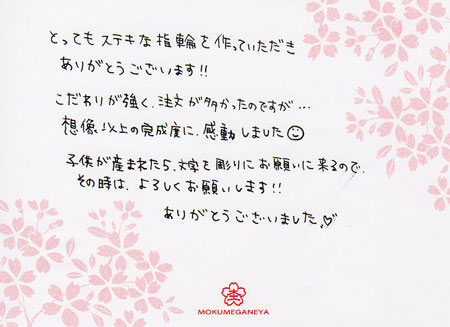 とってもステキな指輪を作っていただき
ありがとうございます!!
こだわりが強く、注文が多かったのですが…
想像以上の完成度に、感動しました☺
子供が産まれたら、文字を彫りにお願いに来るので、
その時は、よろしくお願いします!!
ありがとうございました♡
杢
MOKUMEGANEYA